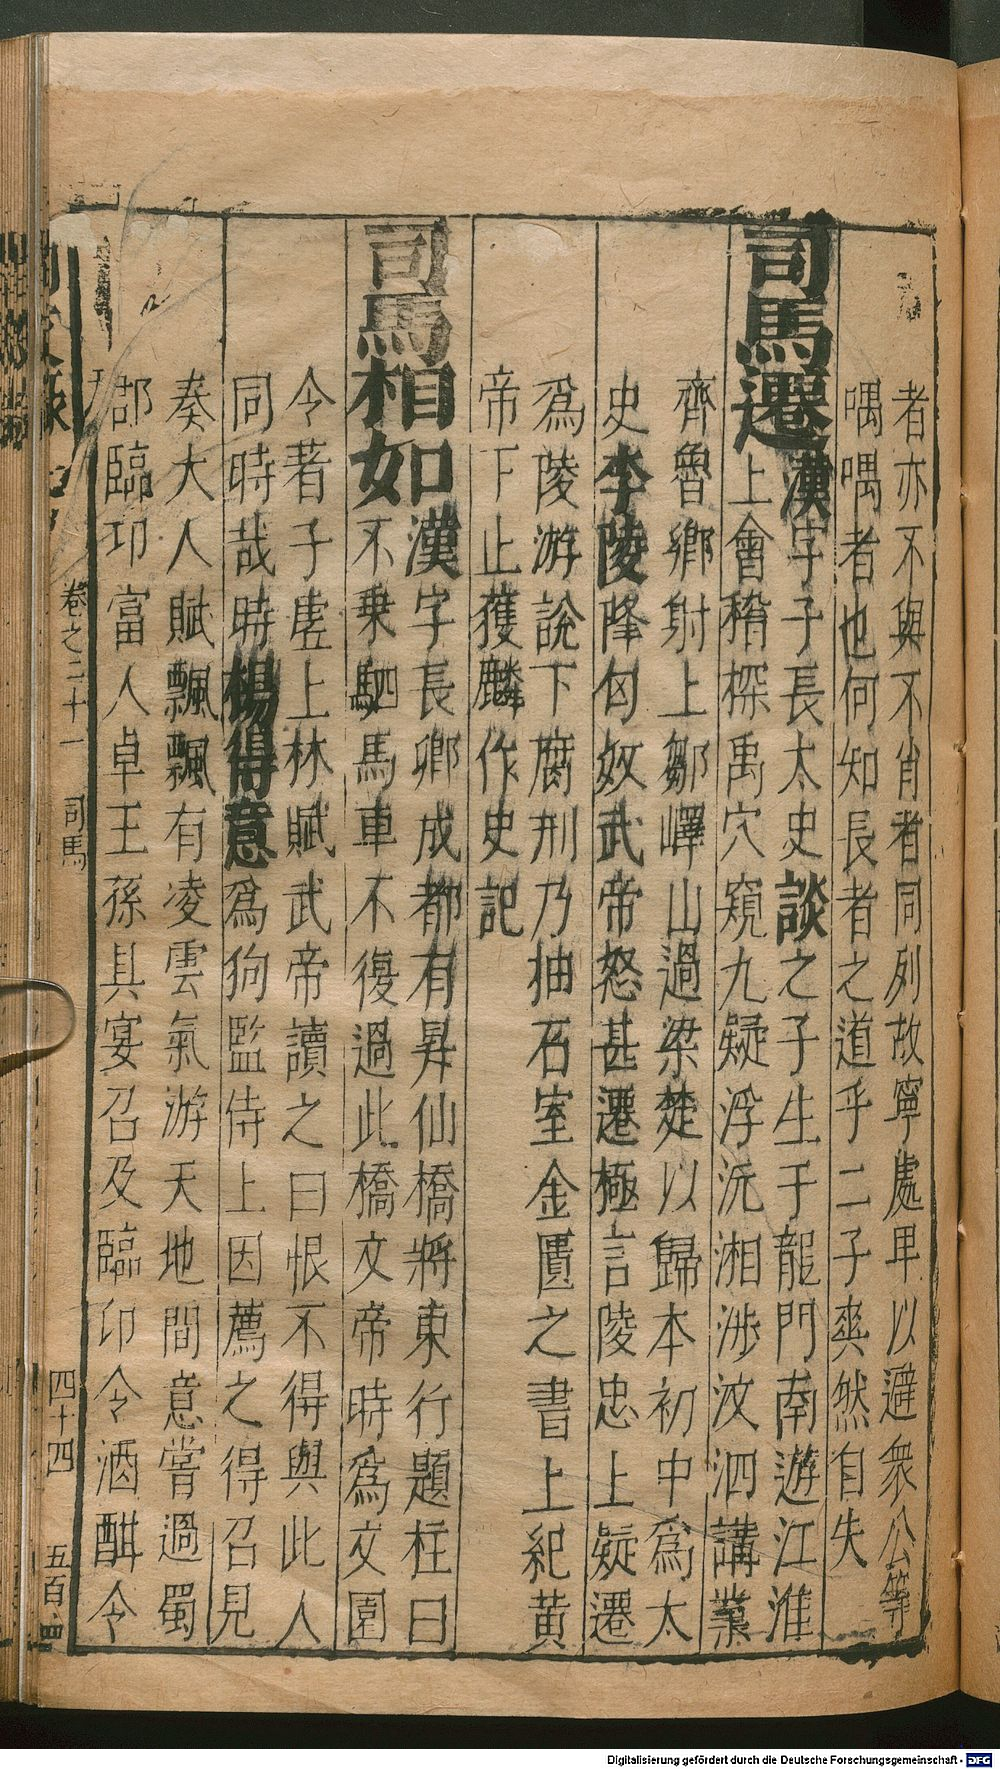 者亦不與不肖者同列故寧處卑以避衆公等
喁喁者也何知長者之道乎二子爽然自失
司馬遷漢字子長太史談之子生于龍門南遊江淮
上會稽探禹穴窺九疑浮沅湘涉汶泗講業
齊魯鄉射上鄒嶧山過梁楚以歸本初中爲太
史李陵降匈奴武帝怒甚遷極言陵忠上疑遷
爲陵游說下腐刑乃抽石室金匱之書上紀黃
帝下止獲麟作史記
司馬相如漢字長卿成都有昇仙橋將東行題柱曰
不乗駟馬車不復過此橋文帝時爲文園
令著子虛上林賦武帝讀之曰恨不得與此人
同時哉時楊得意爲狗監侍上因薦之得召見
奏大人賦飄飄有凌雲氣游天地間意嘗過蜀
郡臨邛富人卓王孫具宴召及臨邛令酒酣令
卷之二十一 司馬 四十四 五百四
Digitalisierung gefördert durch die Deutsche Forschungsgemeinschaft - DFG